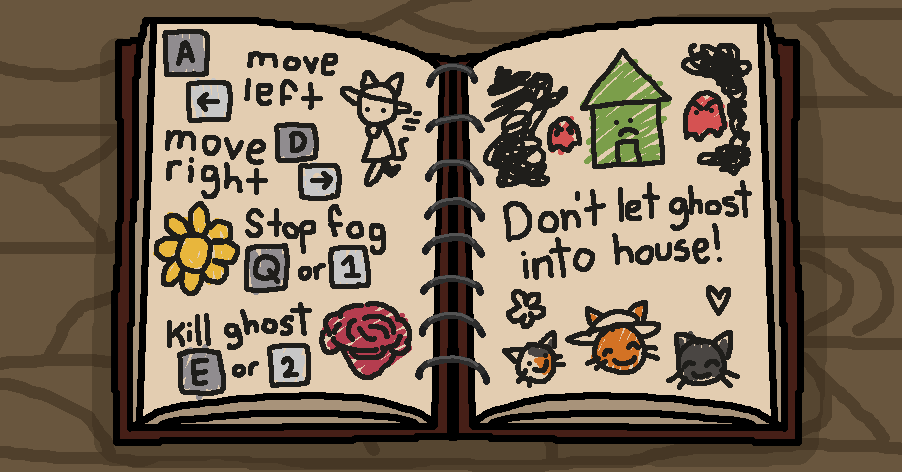 A move
← left
move D
right →
Stop fog
Q or 1
kill ghost
E or 2
Don't let ghost
into house!